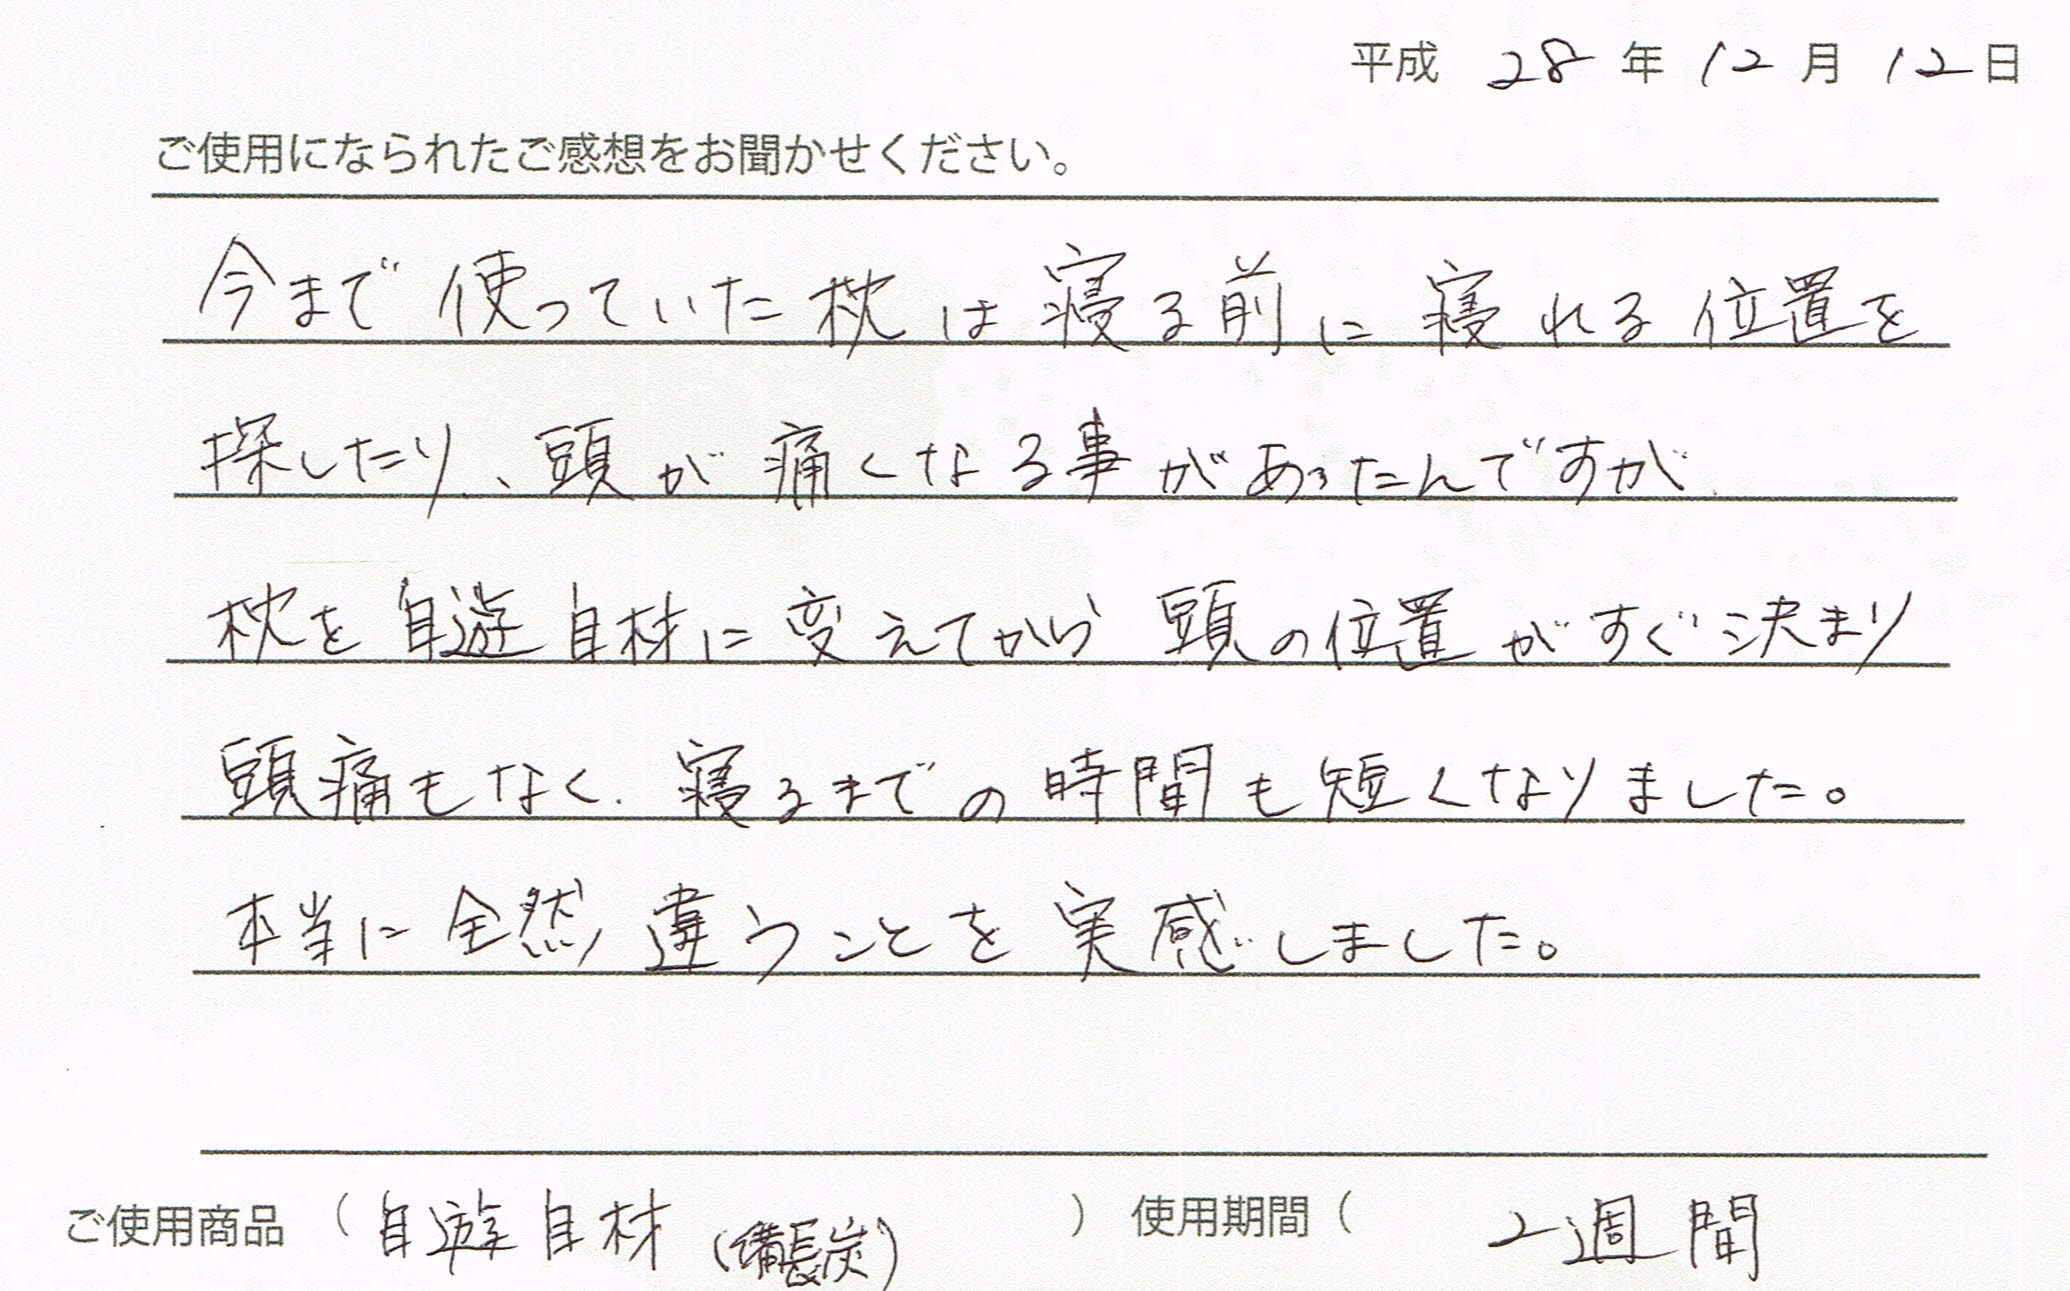 平成 28 年 12 月 12 日
ご使用になられたご感想をお聞かせください。
今まで使っていた枕は寝る前に寝れる位置を
探したり、頭が痛くなる事があったんですが
枕を自遊自材に変えてから頭の位置がすぐ決まり
頭痛もなく、寝るまでの時間も短くなりました。
本当に全然違うことを実感しました。
ご使用商品 ( 自遊自材 (備長炭) ) 使用期間 ( 2週間